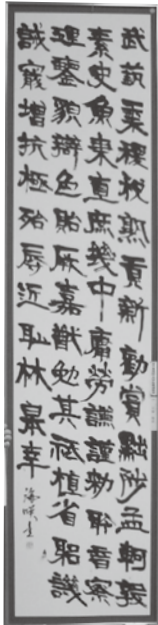 我藝黍稷稅熟貢新勸賞黜陟孟軻敦
素史魚秉直庶幾中庸勞謙謹勅聆音察
理鑒貌辯色貽厥嘉猷勉其祗植省躬譏
誡寵增抗極殆辱近耻林皋幸